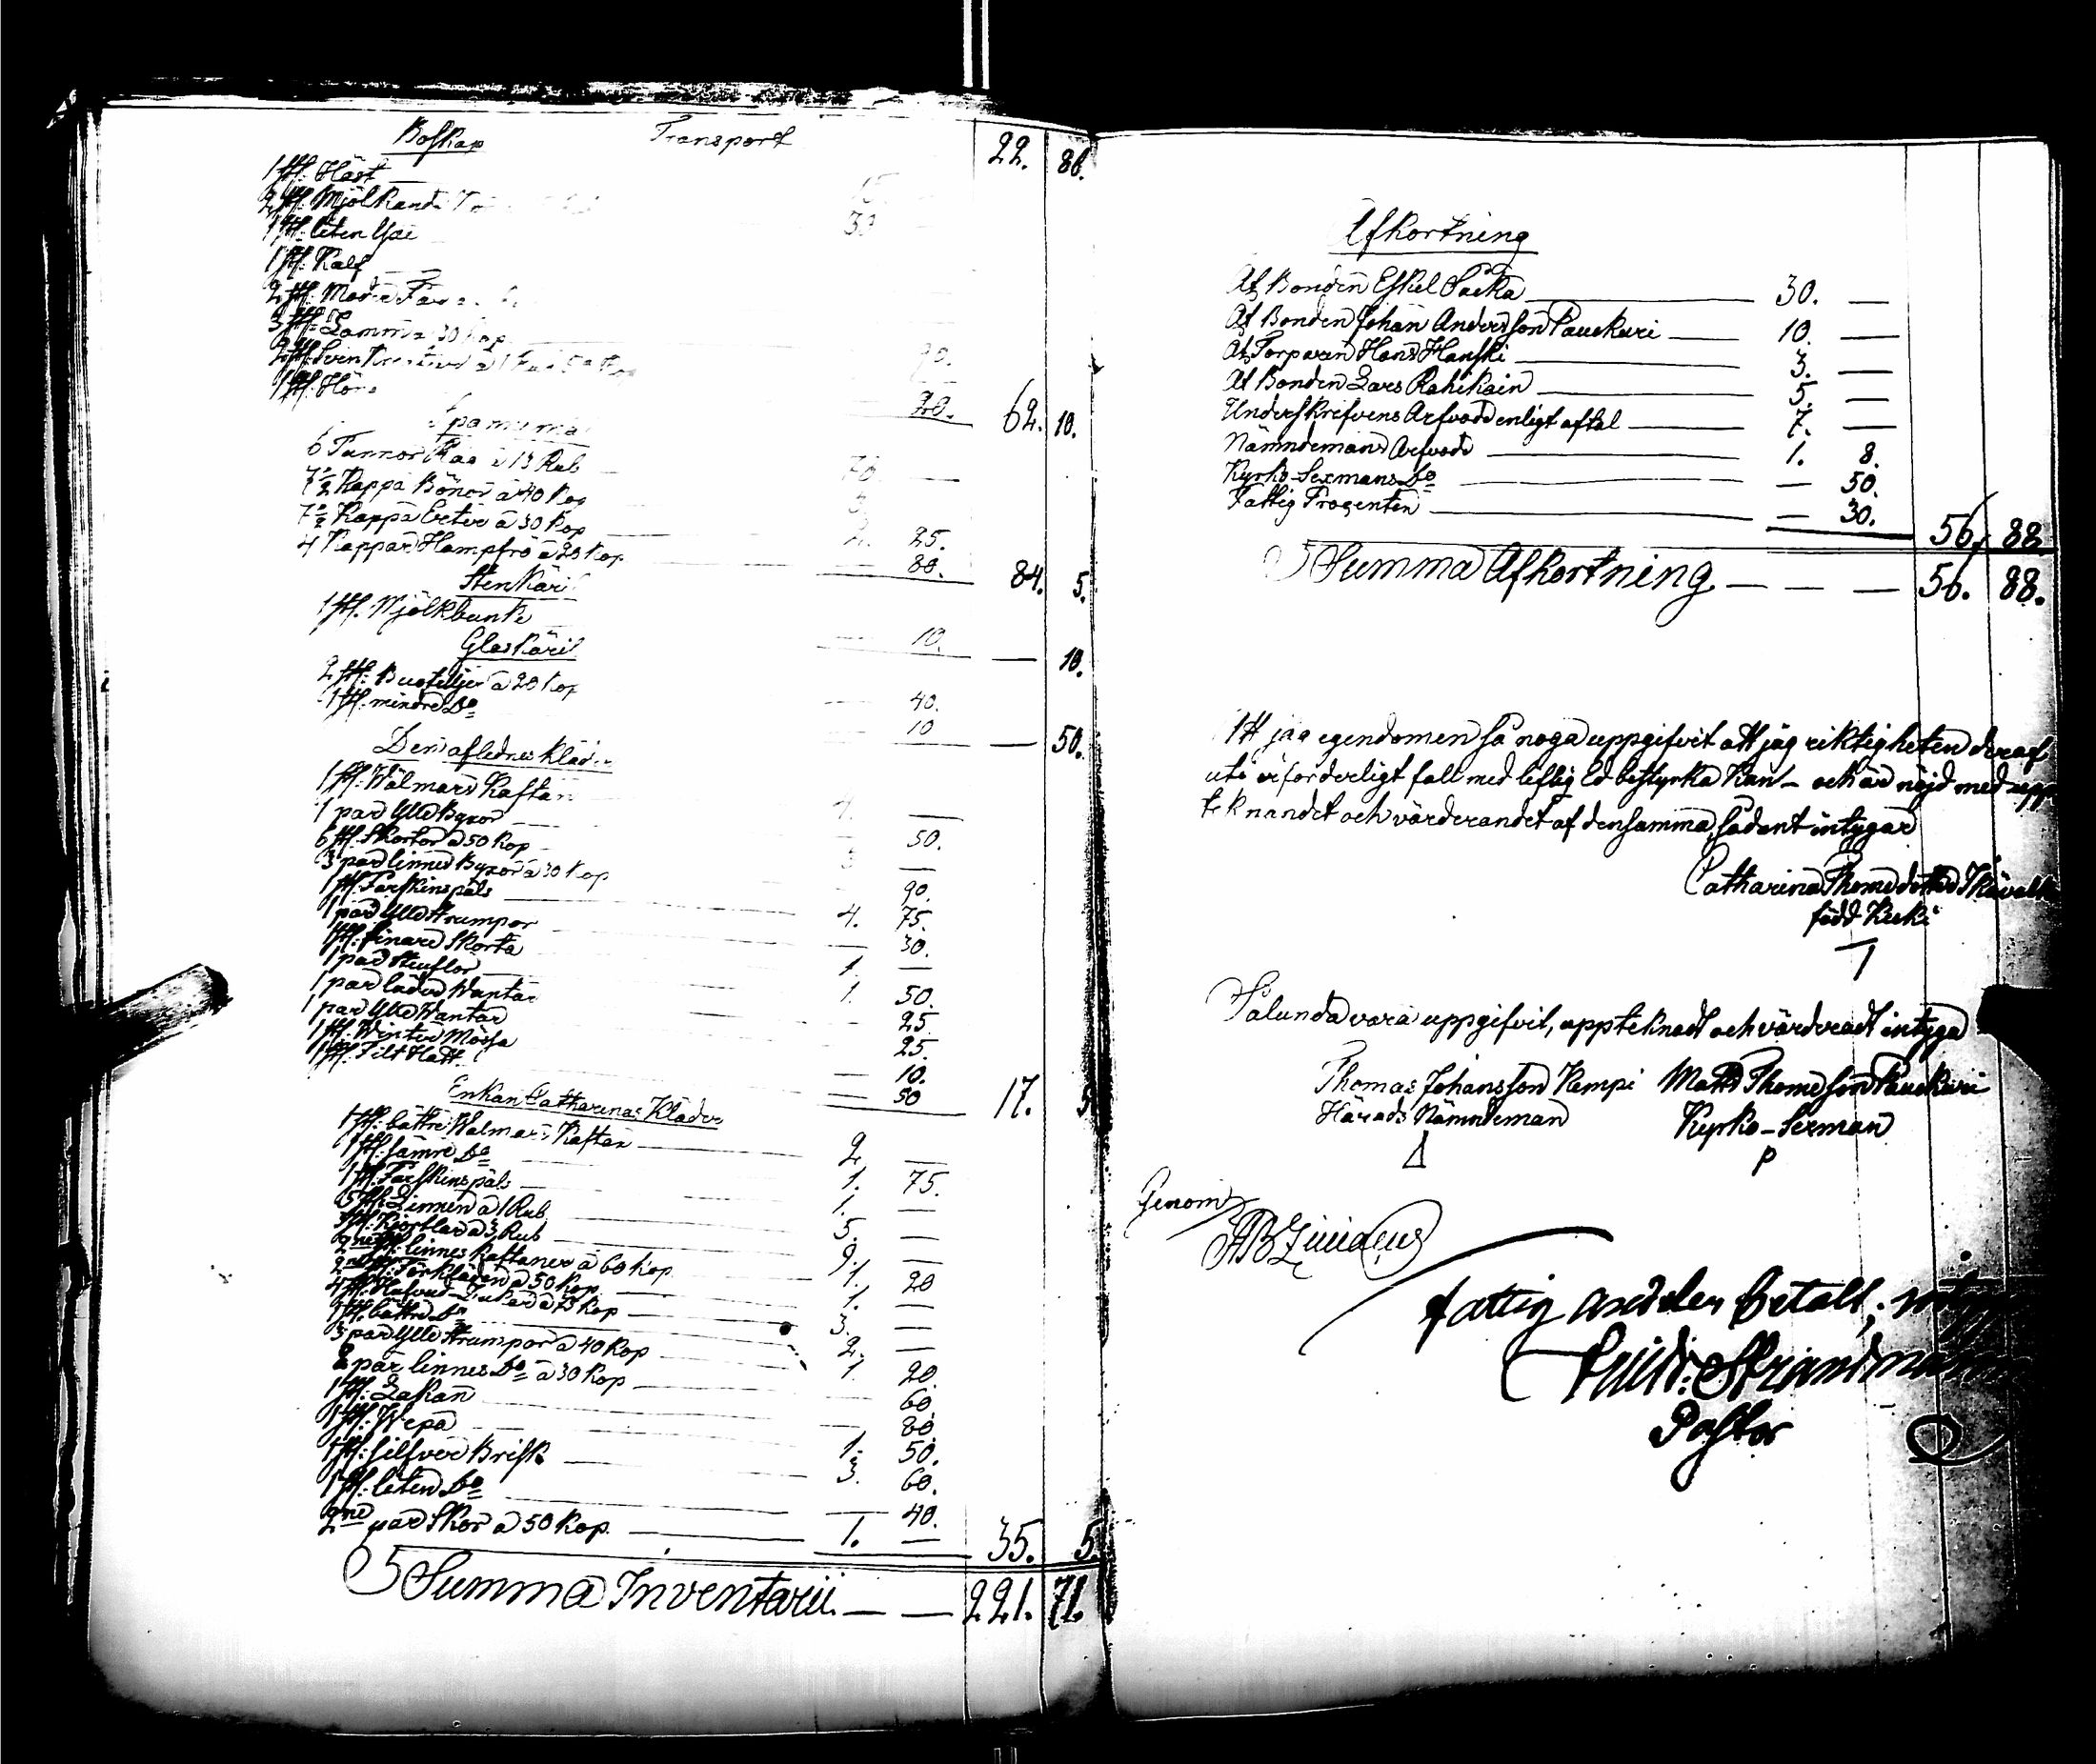 Boskap Transport 22. 86.
1 st: Häst 15
2 st: Mjölkande 30
1 st: liten
1 st: Kalf
2 st: Moder Får
3 st: Lamm a 30 Kop 90.
2 st: Svin
1 st: Höns 20. 62. 10.
Spanmål
6 Tunnor Råg a 13 Rub 78.
7½ Kappa Bönor a 40 Kop 3.
7½ Kappa Erter a 30 Kop 2. 25.
4 Kappar Hampfrö a 20 Kop 80. 84. 5.
Stenkäril
1 st. Mjölkbunke 10. — 10.
Glaskäril
2 st: Buteljer a 20 Kop 40.
1 st. mindre Do 10 — 50.
Den aflednes kläder
1 st: Walmars Kaftan 4. —
1 par Ylle Byxor 50.
6 st. Skortor a 50 Kop 3 —
3 par linnes Byxor a 30 Kop 90.
1 st. Fårskinspäls 4. 75.
1 par Ylle Strumpor — 30.
1 st: finare Skorta 1. —
1 par Stuflor 1. 50.
1 par läder Wantar — 25
1 par Ylle Wantar 25.
1 st. Winter Mössa — 10.
1 st. Filt Hatt — 50 17. 5
Enkan Catharinas Kläder
1 st. bättre Walmars Kaftan 2 —
1 st. sämre Do 1. 75.
1 st. Fårskinspäls 1. —
5 st. Linnen a 1 Rub 5. —
3 st. Kjortlar a 3 Rub 9. —
2ne st. linnes Kaftaner a 60 Kop 1. 20
2ne st. Förkläden a 50 Kop. 1. —
4 st. Hufvud-Dukar a 75 Kop 3. —
1 st. bättre Do 2. —
3 par Ylle Strumpor a 40 Kop 1 20
2 par linnes Do a 30 Kop 60.
1 st. Lakan — 80.
1 st. Wepa 1. 50.
1 st: silfver Brisk 3. 60.
1 st. liten Do — 40.
2ne par Skor a 50 Kop. 1. — 35. 5.
Summa Inventarii. — — 221. 71.
Afkortning
At Bonden Eskel 30. —
At Bonden Johan Andersson Paukkuri 10. —
At Torparen Hans Hanski 3. —
At Bonden Lars Rahikain 5. —
Underskrifvens Arfvode enligt aftal 7. —
Nämndemans Arfvode 1. 8.
Kyrko-Sexmans Do — 50.
Fattig Procenten — 30. 56. 88
Summa Afkortning — — — 56. 88.
Att jag egendomen så noga uppgifvit att jag riktigheten deraf
uti erforderligt fall med liflig Ed bestyrka Kan — och är nöjd med upp
teknandet och värderandet af densamma, sådant intygar
Catharina Thomedotter
född Kukki
Sålunda vara uppgifvit, uppteknadt och värderadt intyga
Thomas Johansson Kempi Matts Thomesson Paukkuri
Härads Nämndeman Kyrko-Sexman
Genom
fattig andelen betalt,
Strandman
Pastor